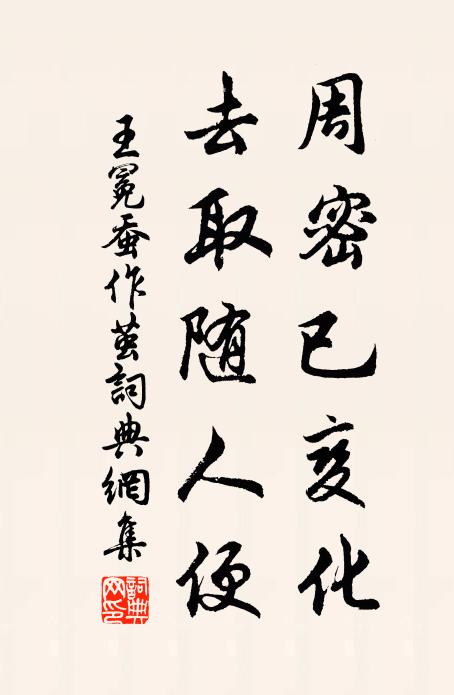 周密已变化
去取随人便
王冕蚕作茧詞典網集
詞典网印